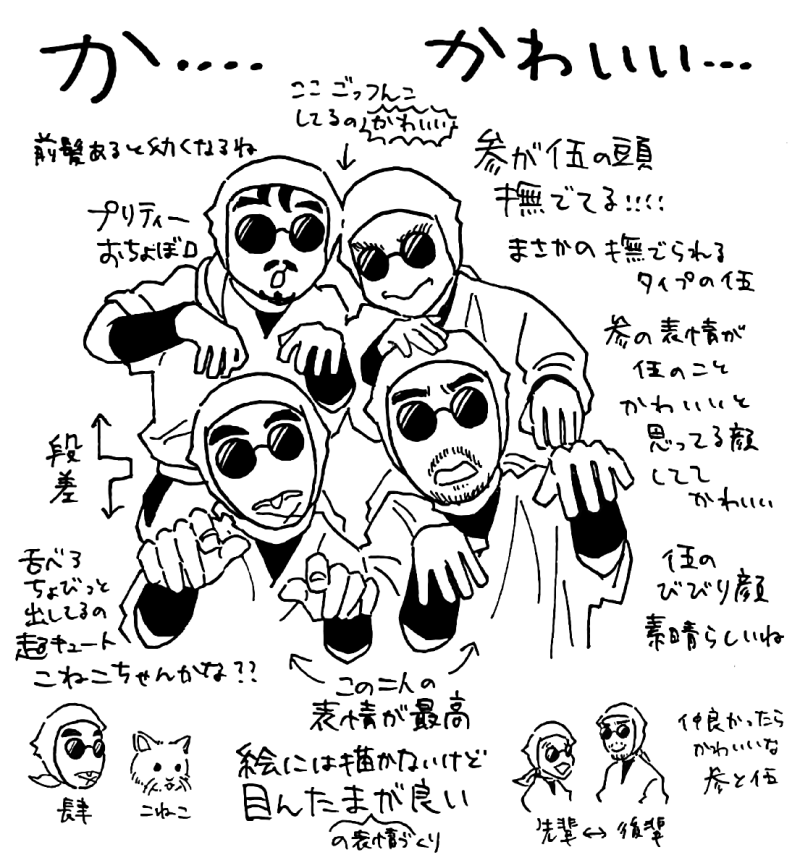 か‥‥
かわいい…
ここ ごっつんこ
してるの、かわいい
前髪あると幼くなるね
プリティー
おちょぼロ
参が伍の頭
撫でてる!!!!
まさかの撫でられる
タイプの伍
参の表情が
伍のこと
かわいいと
思ってる顔
してて
かわいい
段差
舌べろ
ちょびっと
出してるの
超キュート
こねこちゃんかな??
伍の
びびり顔
素晴らしいね
この二人の
表情が最高
絵には描かないけど
目んたまが良い
の表情づくり
肆
こねこ
先輩↔後輩
仲良かったら
かわいいな
参と伍